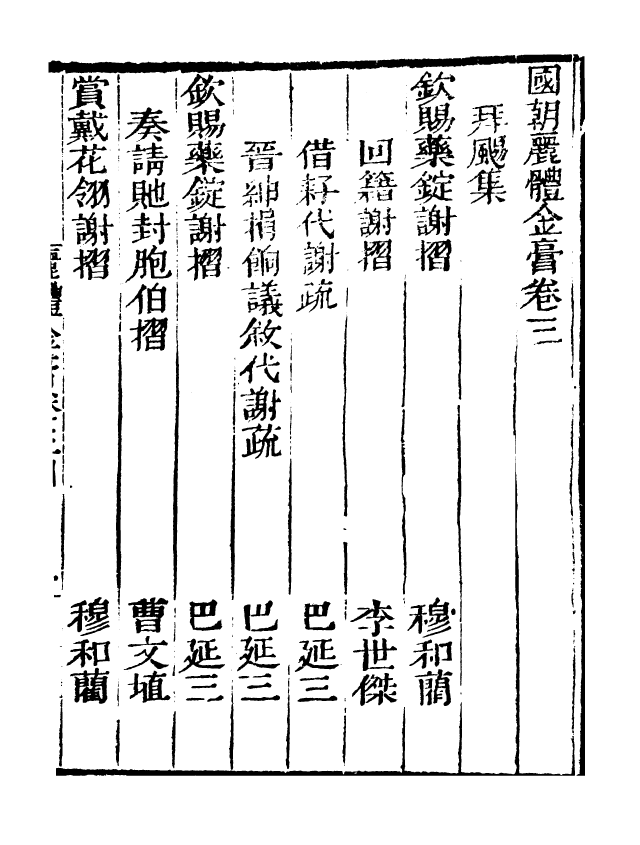 國朝麗體金膏卷三
拜颺集
欽賜藥錠謝摺 穆和藺
回籍謝摺 李世傑
借耔代謝疏 巴延三
晉紳捐餉議敘代謝疏 巴延三
欽賜藥錠謝摺 巴延三
奏請貤封胞伯摺 曹文埴
賞戴花翎謝摺 穆和藺
麗體金膏卷三